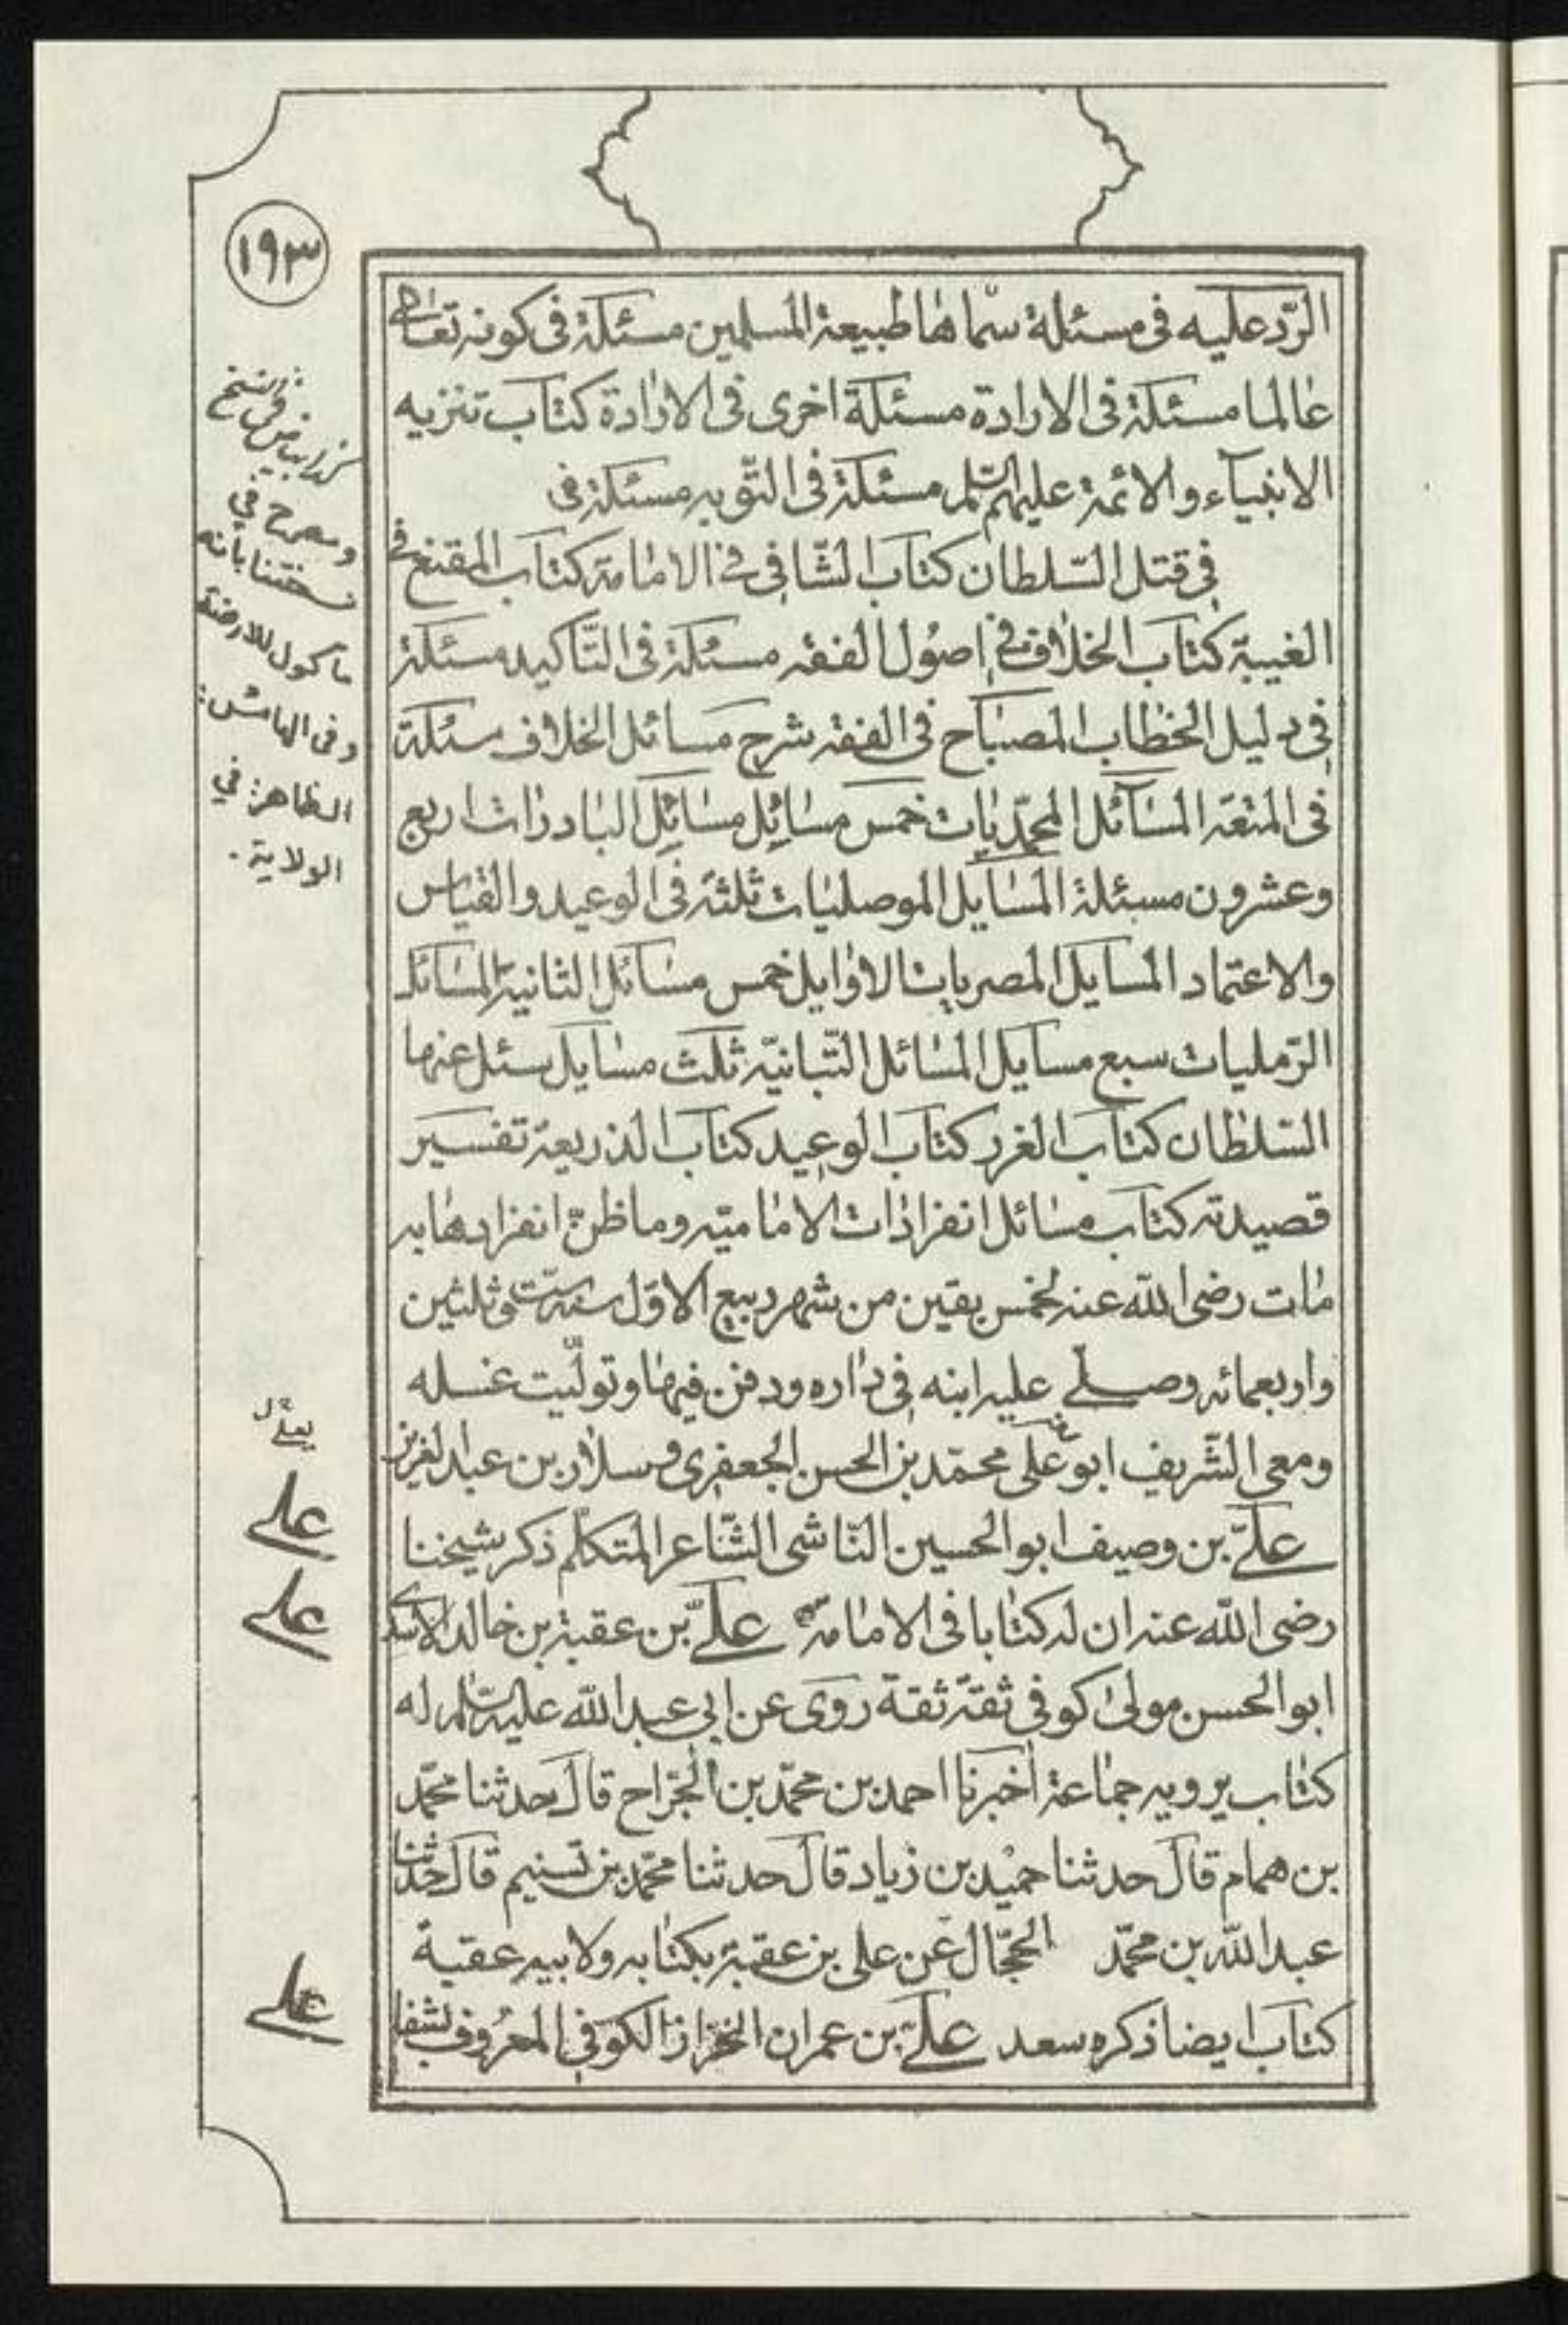 ١٩٣
الرّد عليه فى مسئلة سمّاها طبيعة المسلمين مسئلة فى كونه تعالى
عالما مسئلة فى الارادة مسئلة اخرى فى الارادة كتاب تنزيه
الانبياء والائمة عليهم السّلم مسئلة فى التّوبه مسئلة فى
فى قتل السّلطان كتاب الشّافى فى الامامة كتاب المقنع فى
الغيبة كتاب الخلاف فى اصول الفقه مسئلة فى التّاكيد مسئلة
فى دليل الخطاب المصباح فى الفقه شرح مسائل الخلاف مسئلة
فى المتعه المسآئل المحمّديات خمس مسايل مسايل البادرات اربع
وعشرون مسئلة المسايل الموصليات ثلثة فى الوعيد والقياس
والاعتماد المسايل المصريات الاوايل خمس مسائل الثانية المسائل
الرّمليات سبع مسايل المسائل التّبانيّه ثلث مسايل سئل عنها
السّلطان كتاب الغرر كتاب الوعيد كتاب الذريعة تفسير
قصيدته كتاب مسائل انفرادات الاماميّه وما ظنّ انفرادها به
مات رضى الله عنه لخمس بقين من شهر ربيع الاوّل سنة ستّ وثلثين
واربعمائه وصلّے عليه ابنه فى داره ودفن فيها وتولّيت غسله
ومعى الشّريف ابو على محمّد بن الحسن الجعفرى وسلار بن عبد العزيز
علىّ بن وصيف ابو الحسين النّاشى الشّاعر المتكلّم ذكر شيخنا
رضى الله عنه ان له كتابا فى الامامة علىّ بن عقبة بن خالد الاسدى
ابو الحسن مولى كوفى ثقة ثقة روى عن ابى عبد الله عليه السّلم له
كتاب يرويه جماعة اخبرنا احمد بن محمّد بن الجرّاح قال حدثنا محمّد
بن همام قال حدثنا حميد بن زياد قال حدثنا محمّد بن تسنيم قال حدثنا
عبد الله بن محمّد الحجّال عن على بن عقبة بكتابه ولابيه عقبة
كتاب ايضا ذكره سعد علىّ بن عمران الخزّاز الكوفى المعروف بشفا
وصرح في
نسختنا بانه
مأكول للارضة
وفى الهامش:
الظاهر: في
الولاية.
يعلى ل
على
على
على